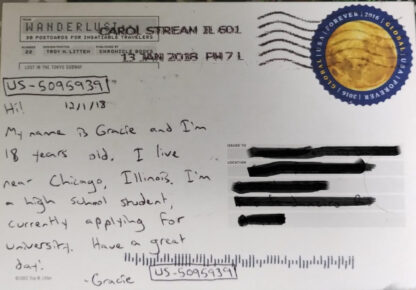 TITLE
WANDERLUST
30 POSTCARDS FOR INSATIABLE TRAVELERS
NUMBER
22
DESIGN BY
TROY M. LITTEN
PUBLISHED BY
CHRONICLE BOOKS
LOST IN THE TOKYO SUBWAY
CAROL STREAM IL 601
13 JAN 2018 PM 7 L
GLOBAL USA FOREVER 2016
US-5095939
Hi! 12/1/18
My name is Gracie and I'm
18 years old. I live
near Chicago, Illinois. I'm
a high school student,
currently applying for
university. Have a great
day!
-Gracie
US-5095939
ISSUED TO
LOCATION